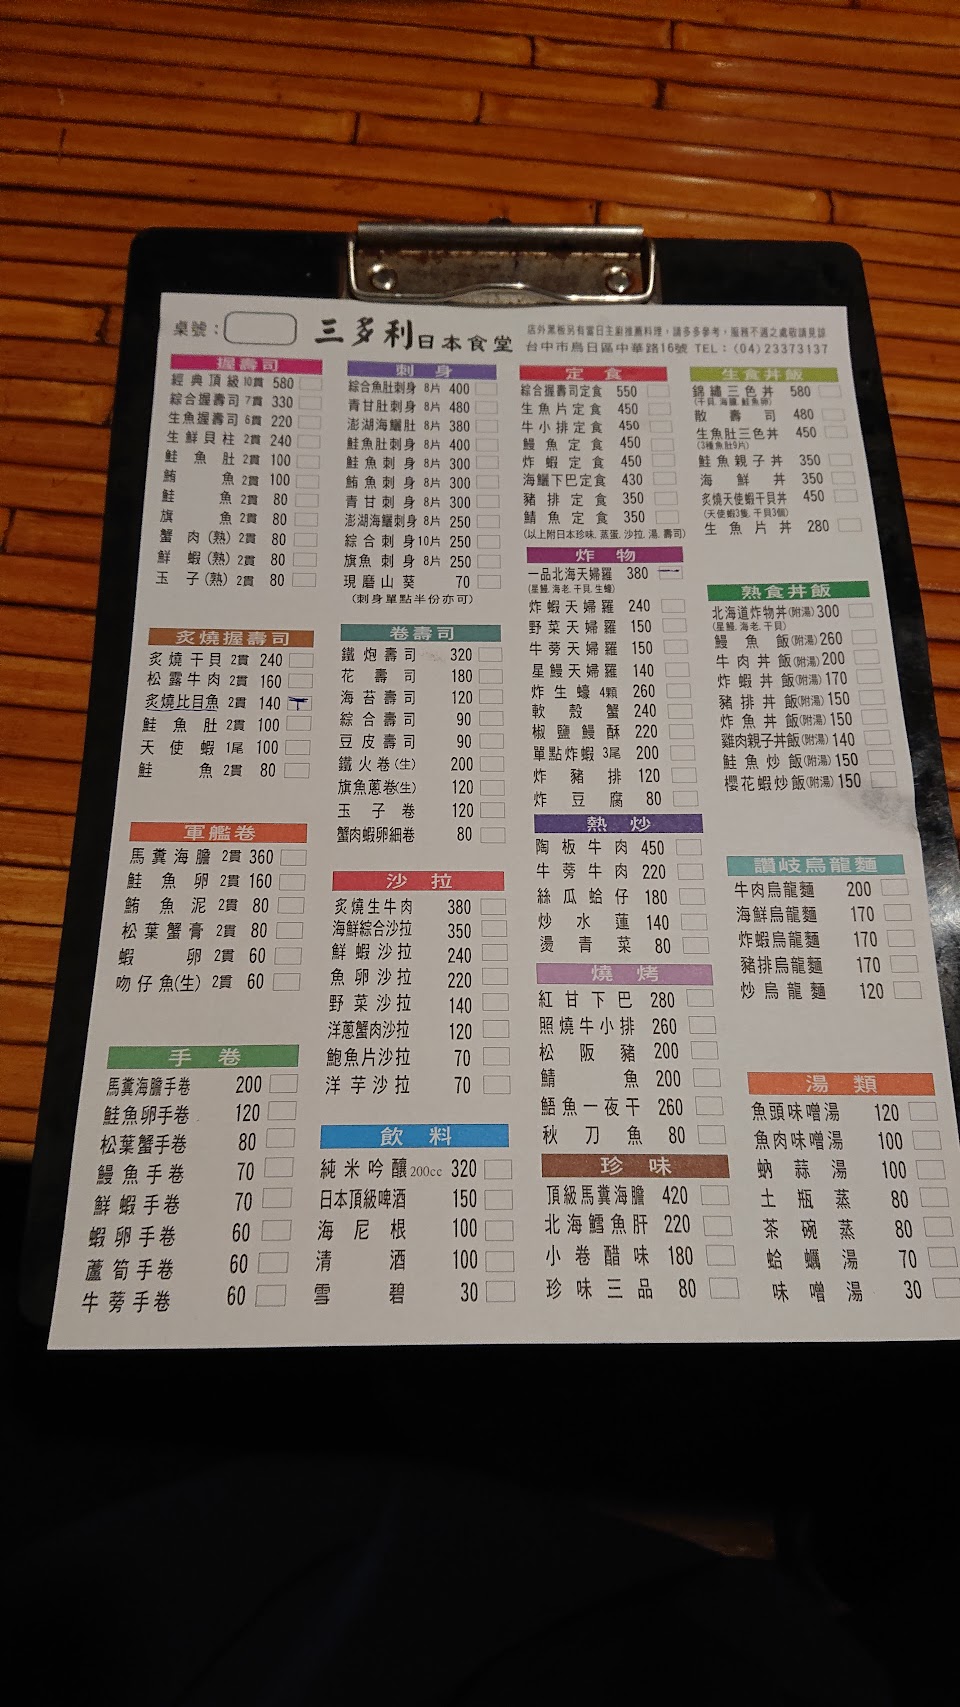 桌號：
三多利日本食堂
店外黑板另有當日主廚推薦料理，請多多參考，服務不週之處敬請見諒
台中市烏日區中華路16號 TEL：(04)23373137
握壽司
經典頂級 10貫 580
綜合握壽司 7貫 330
生魚握壽司 6貫 220
生鮮貝柱 2貫 240
鮭魚肚 2貫 100
鮪魚 2貫 100
鮭魚 2貫 80
旗魚 2貫 80
蟹肉(熟) 2貫 80
鮮蝦(熟) 2貫 80
玉子(熟) 2貫 80
炙燒握壽司
炙燒干貝 2貫 240
松露牛肉 2貫 160
炙燒比目魚 2貫 140
鮭魚肚 2貫 100
天使蝦 1尾 100
鮭魚 2貫 80
軍艦卷
馬糞海膽 2貫 360
鮭魚卵 2貫 160
鮪魚泥 2貫 80
松葉蟹膏 2貫 80
蝦卵 2貫 60
吻仔魚(生) 2貫 60
手卷
馬糞海膽手卷 200
鮭魚卵手卷 120
松葉蟹手卷 80
鰻魚手卷 70
鮮蝦手卷 70
蝦卵手卷 60
蘆筍手卷 60
牛蒡手卷 60
刺身
綜合魚肚刺身 8片 400
青甘肚刺身 8片 480
澎湖海鱺肚 8片 380
鮭魚肚刺身 8片 400
鮭魚刺身 8片 300
鮪魚刺身 8片 300
青甘刺身 8片 300
澎湖海鱺刺身 8片 250
綜合刺身 10片 250
旗魚刺身 8片 250
現磨山葵 70
(刺身單點半份亦可)
卷壽司
鐵炮壽司 320
花壽司 180
海苔壽司 120
綜合壽司 90
豆皮壽司 90
鐵火卷(生) 200
旗魚蔥卷(生) 120
玉子卷 120
蟹肉蝦卵細卷 80
沙拉
炙燒生牛肉 380
海鮮綜合沙拉 350
鮮蝦沙拉 240
魚卵沙拉 220
野菜沙拉 140
洋蔥蟹肉沙拉 120
鮑魚片沙拉 70
洋芋沙拉 70
飲料
純米吟釀 200cc 320
日本頂級啤酒 150
海尼根 100
清酒 100
雪碧 30
定食
綜合握壽司定食 550
生魚片定食 450
牛小排定食 450
鰻魚定食 450
炸蝦定食 450
海鱺下巴定食 430
豬排定食 350
鯖魚定食 350
(以上附日本珍味. 蒸蛋. 沙拉. 湯. 壽司)
炸物
一品北海天婦羅 380
(星鰻. 海老. 干貝. 生蠔)
炸蝦天婦羅 240
野菜天婦羅 150
牛蒡天婦羅 150
星鰻天婦羅 140
炸生蠔 4顆 260
軟殼蟹 240
椒鹽鰻酥 220
單點炸蝦 3尾 200
炸豬排 120
炸豆腐 80
熱炒
陶板牛肉 450
牛蒡牛肉 220
絲瓜蛤仔 180
炒水蓮 140
燙青菜 80
燒烤
紅甘下巴 280
照燒牛小排 260
松阪豬 200
鯖魚 200
鯃魚一夜干 260
秋刀魚 80
珍味
頂級馬糞海膽 420
北海鱈魚肝 220
小卷醋味 180
珍味三品 80
生食丼飯
錦繡三色丼 580
(干貝. 海膽. 鮭魚卵)
散壽司 480
生魚肚三色丼 450
(3種魚肚9片)
鮭魚親子丼 350
海鮮丼 350
炙燒天使蝦干貝丼 450
(天使蝦3隻. 干貝3個)
生魚片丼 280
熟食丼飯
北海道炸物丼(附湯) 300
(星鰻. 海老. 干貝)
鰻魚飯(附湯) 260
牛肉丼飯(附湯) 200
炸蝦丼飯(附湯) 170
豬排丼飯(附湯) 150
炸魚丼飯(附湯) 150
雞肉親子丼飯(附湯) 140
鮭魚炒飯(附湯) 150
櫻花蝦炒飯(附湯) 150
讚岐烏龍麵
牛肉烏龍麵 200
海鮮烏龍麵 170
炸蝦烏龍麵 170
豬排烏龍麵 170
炒烏龍麵 120
湯類
魚頭味噌湯 120
魚肉味噌湯 100
蚋蒜湯 100
土瓶蒸 80
茶碗蒸 80
蛤蠣湯 70
味噌湯 30